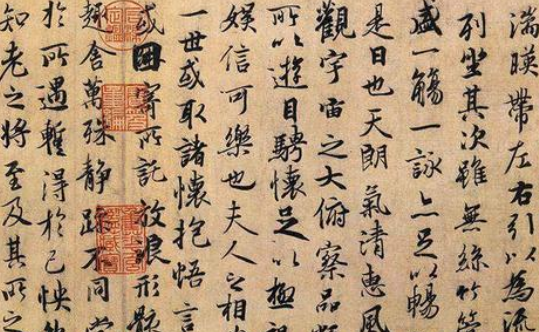 湍暎帶左右引以為流
列坐其次雖無絲竹管
盛一觴一詠亦足以暢
是日也天朗氣清惠風
觀宇宙之大俯察品類
所以遊目騁懷足以極視
娛信可樂也夫人之相
一世或取諸懷抱悟言
或因寄所託放浪形骸
趣舍萬殊靜躁不同當
於所遇暫得於己怏然
知老之將至及其所之